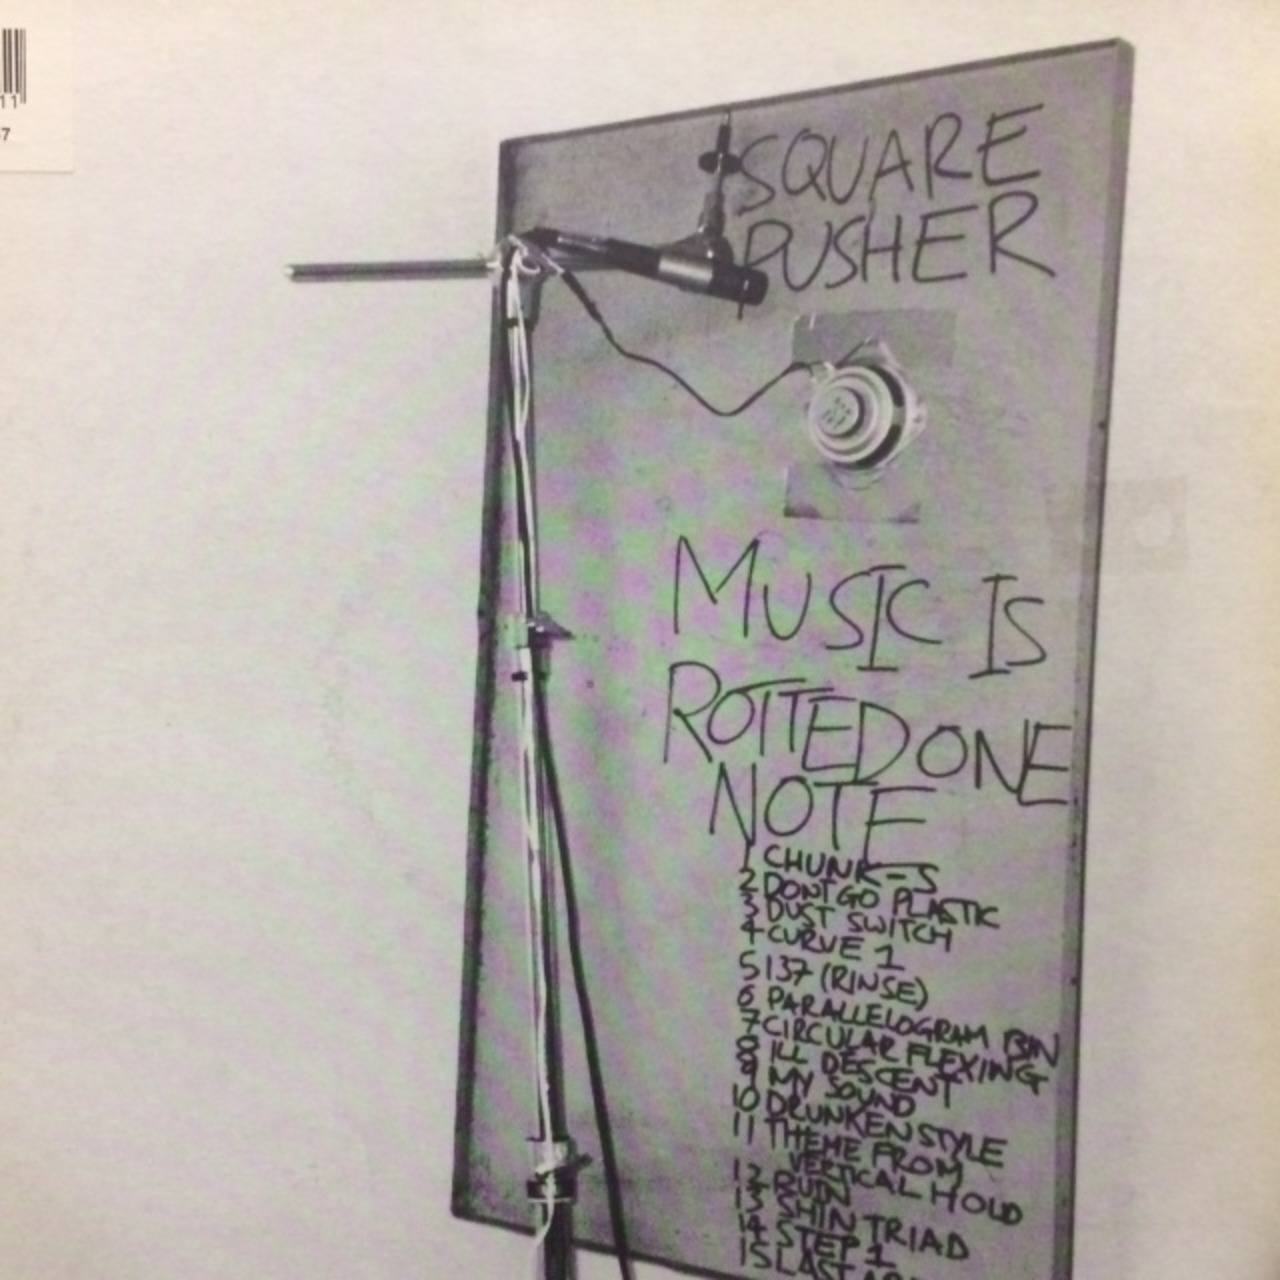 11
7
SQUARE
PUSHER
MUSIC IS
ROTTED ONE
NOTE
1 CHUNK-S
2 DONT GO PLASTIC
3 DUST SWITCH
4 CURVE 1
5 137 (RINSE)
6 PARALLELOGRAM BIN
7 CIRCULAR FLEXING
8 ILL DESCENT
9 MY SOUND
10 DRUNKEN STYLE
11 THEME FROM
VERTICAL HOLD
12 RUIN
13 SHIN TRIAD
14 STEP 1
15 LAST